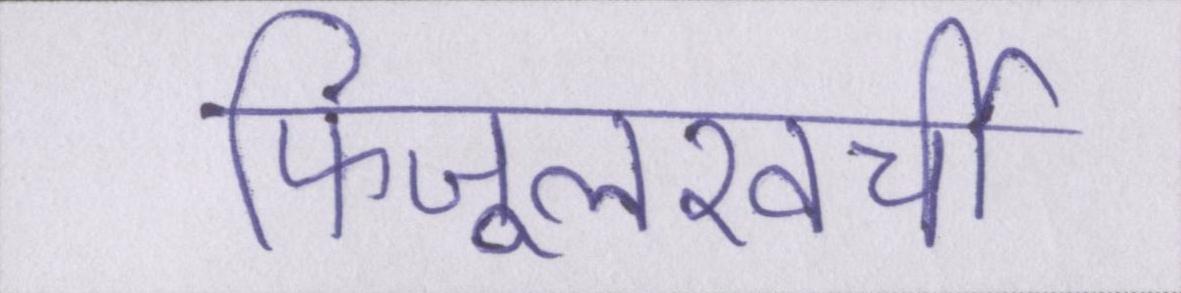 फिजूलखर्ची